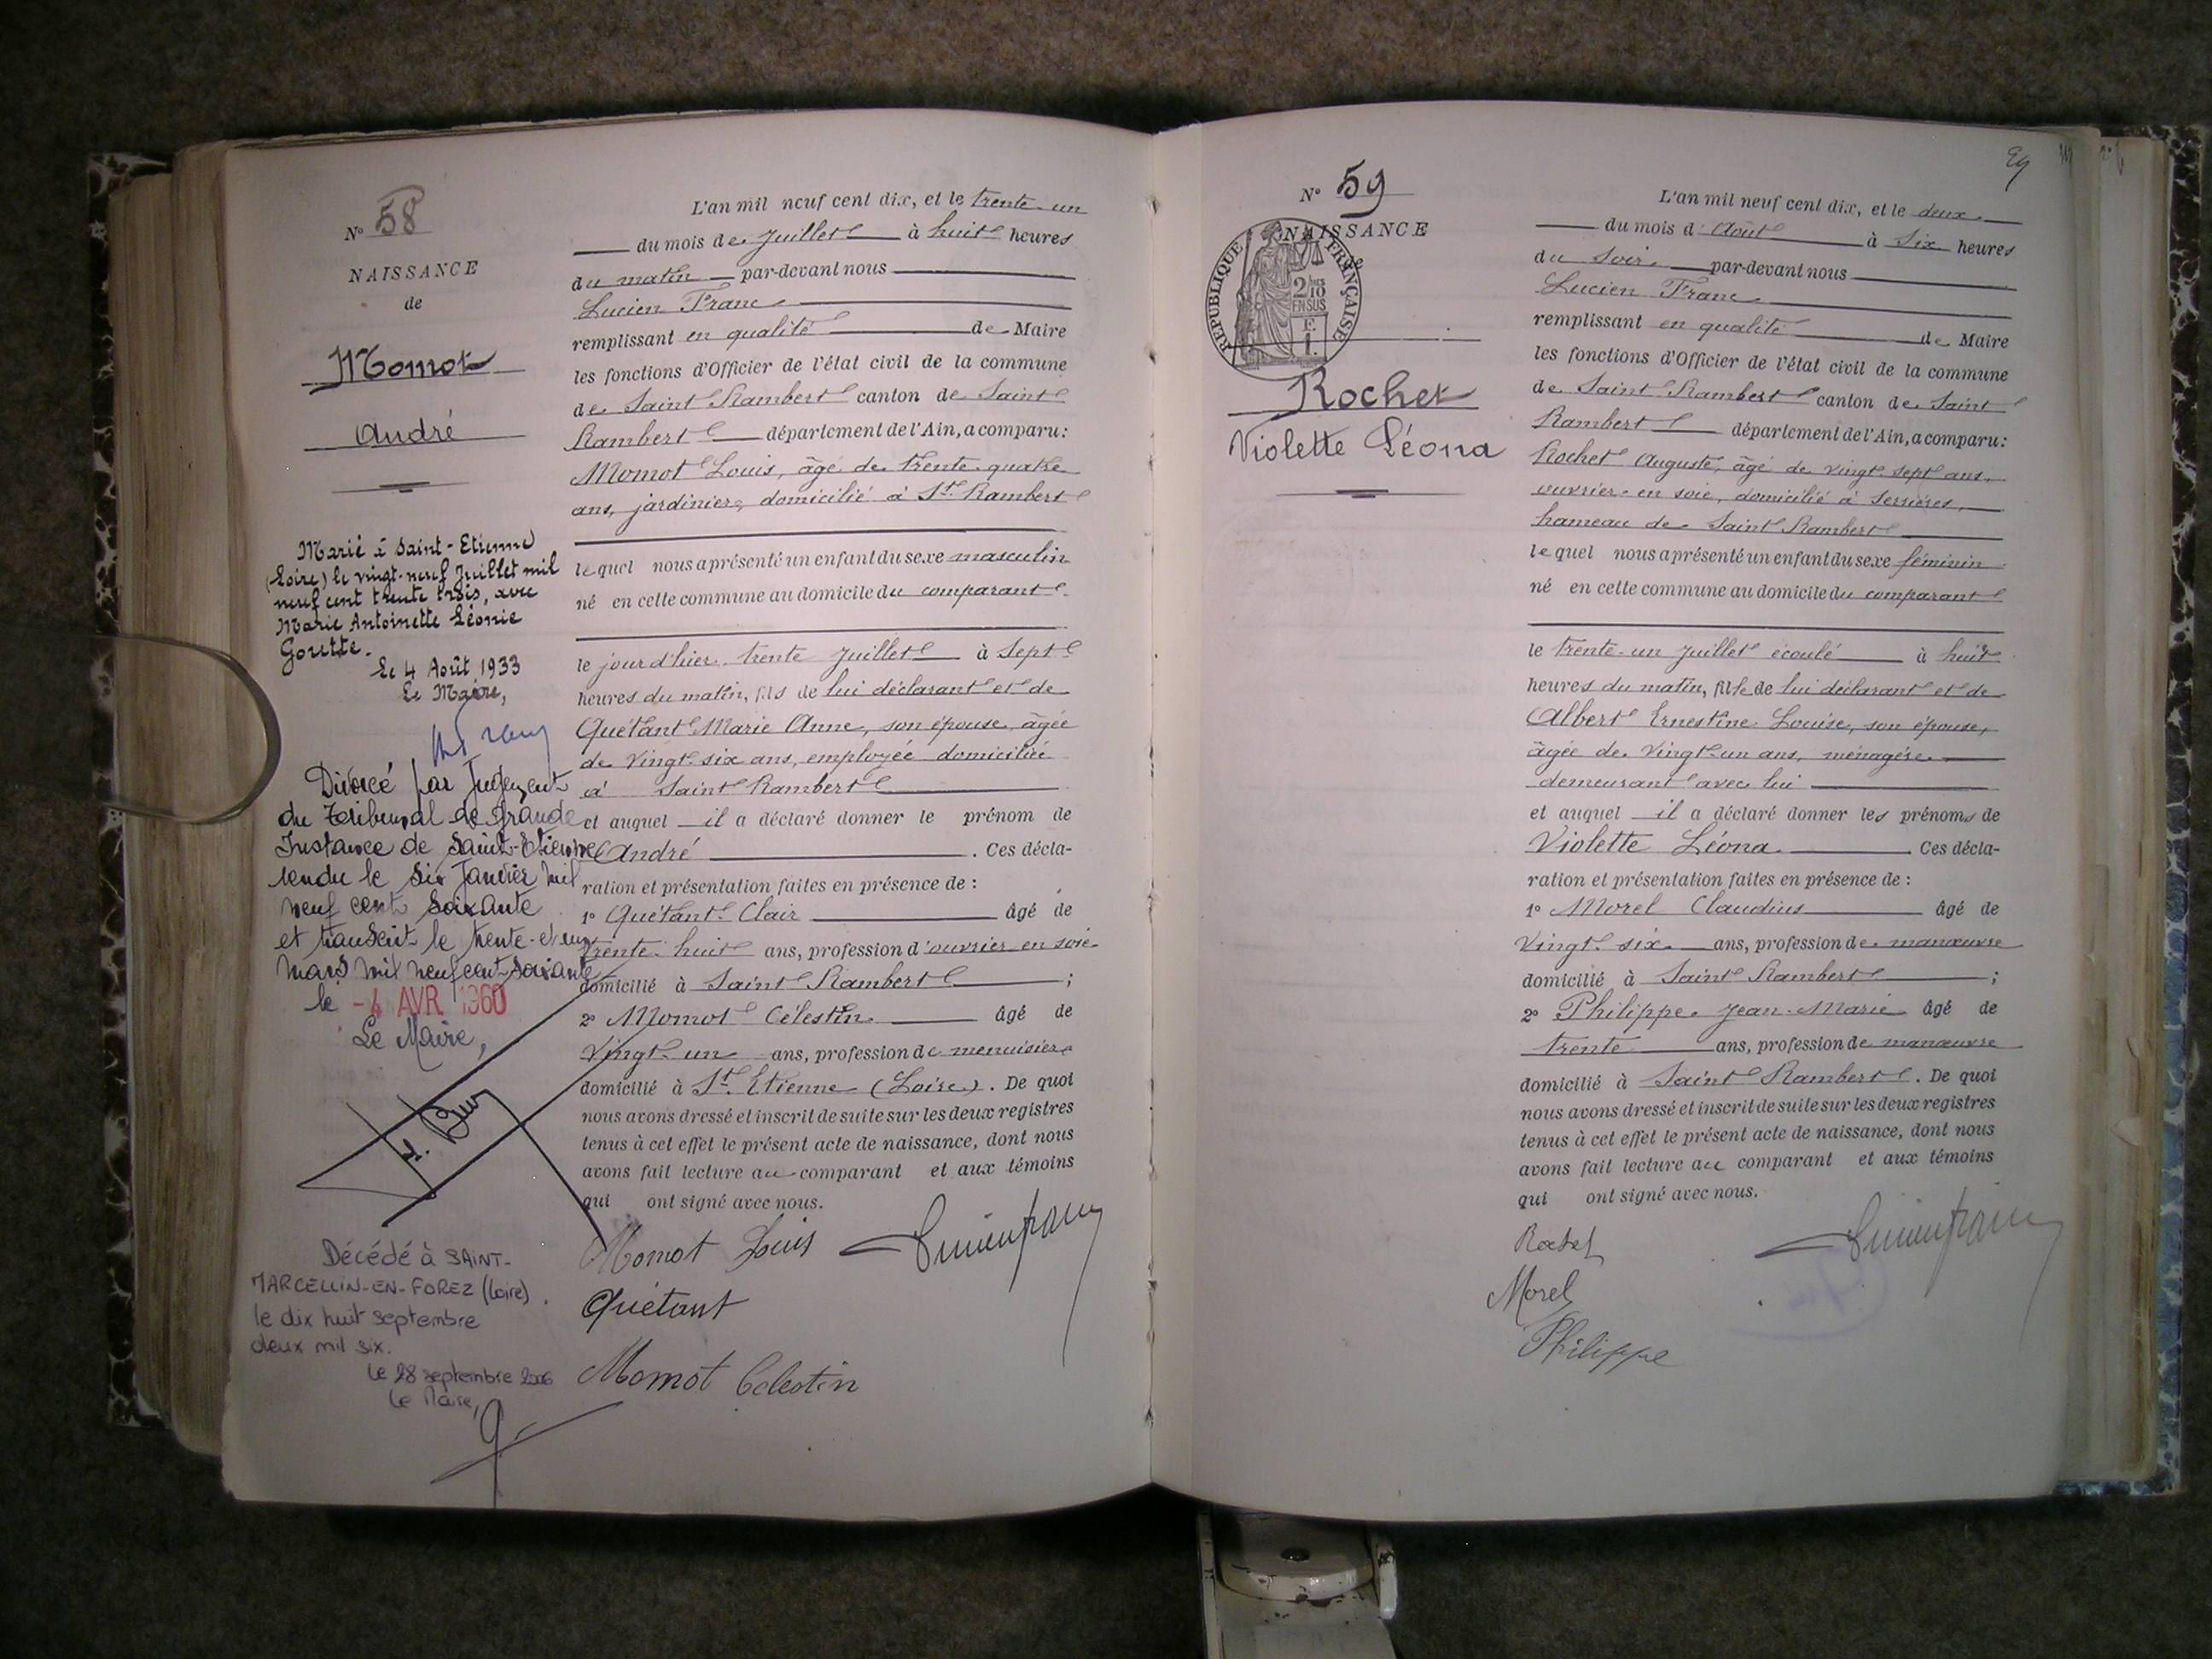 N° 58
NAISSANCE
de
Momot
André
Marié à Saint-Etienne
(Loire) le vingt-neuf Juillet mil
neuf cent trente trois, avec
Marie Antoinette Léonie
Goutte.
Le 4 Août 1933
Le Maire,
Divorcé par Jugement
du Tribunal de Grande
Instance de Saint-Etienne
rendu le Six Janvier mil
neuf cent soixante
et transcrit le trente-et-un
mars mil neuf cent soixante
le -4 AVR 1960
Le Maire,
Décédé à SAINT-
MARCELLIN-EN-FOREZ (Loire)
le dix huit septembre
deux mil six.
Le 28 septembre 2006
Le Maire,
L'an mil neuf cent dix, et le trente-un
du mois de Juillet à huit heures
du matin par-devant nous
Lucien Franc
remplissant en qualité de Maire
les fonctions d'Officier de l'état civil de la commune
de Saint Rambert canton de Saint
Rambert département de l'Ain, a comparu:
Momot Louis, âgé de trente-quatre
ans, jardinier, domicilié à St Rambert
lequel nous a présenté un enfant du sexe masculin
né en cette commune au domicile du comparant
le jour d'hier trente Juillet à Sept
heures du matin, fils de lui déclarant et de
Quétant Marie Anne, son épouse, âgée
de vingt-six ans, employée domiciliée
à Saint Rambert
et auquel il a déclaré donner le prénom de
André . Ces décla-
ration et présentation faites en présence de :
1° Quétant Clair âgé de
trente-huit ans, profession d'ouvrier en soie
domicilié à Saint Rambert ;
2° Momot Célestin âgé de
vingt-un ans, profession de menuisier
domicilié à St Etienne (Loire). De quoi
nous avons dressé et inscrit de suite sur les deux registres
tenus à cet effet le présent acte de naissance, dont nous
avons fait lecture au comparant et aux témoins
qui ont signé avec nous.
Momot Louis Lucien Franc
Quétant
Momot Celestin
N° 59
NAISSANCE
RÉPUBLIQUE FRANÇAISE
2/10
EN SUS
Rochet
Violette Léona
L'an mil neuf cent dix, et le deux
du mois d'Août à Six heures
du soir par-devant nous
Lucien Franc
remplissant en qualité de Maire
les fonctions d'Officier de l'état civil de la commune
de Saint Rambert canton de Saint
Rambert département de l'Ain, a comparu:
Rochet Auguste, âgé de vingt-sept ans,
ouvrier en soie, domicilié à Serrières,
hameau de Saint Rambert
lequel nous a présenté un enfant du sexe féminin
né en cette commune au domicile du comparant
le trente-un Juillet écoulé à huit
heures du matin, fille de lui déclarant et de
Albert Ernestine Louise, son épouse,
âgée de vingt-un ans, ménagère
demeurant avec lui
et auquel il a déclaré donner les prénoms de
Violette Léona. Ces décla-
ration et présentation faites en présence de :
1° Morel Claudius âgé de
Vingt-six ans, profession de manœuvre
domicilié à Saint Rambert ;
2° Philippe Jean-Marie âgé de
trente ans, profession de manœuvre
domicilié à Saint Rambert. De quoi
nous avons dressé et inscrit de suite sur les deux registres
tenus à cet effet le présent acte de naissance, dont nous
avons fait lecture au comparant et aux témoins
qui ont signé avec nous.
Rochet Lucien Franc
Morel
Philippe